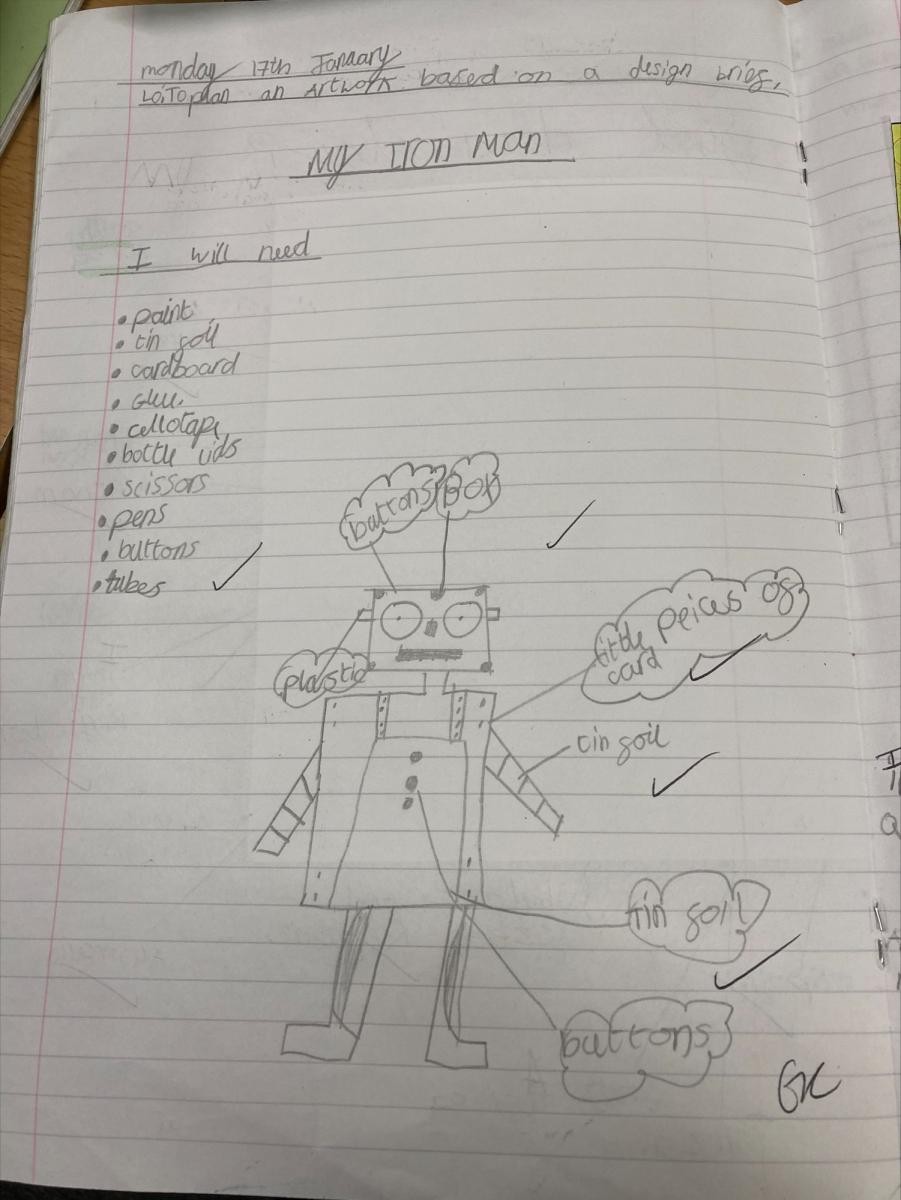 monday 17th January
LO:To plan an Artwork based on a design brief.
My Iron Man
I will need
• paint
• tin foil
• cardboard
• Glue
• cellotape
• bottle lids
• scissors
• pens
• buttons
• tubes
buttons
Box
plastic
little peices of
card
tin foil
tin foil
buttons